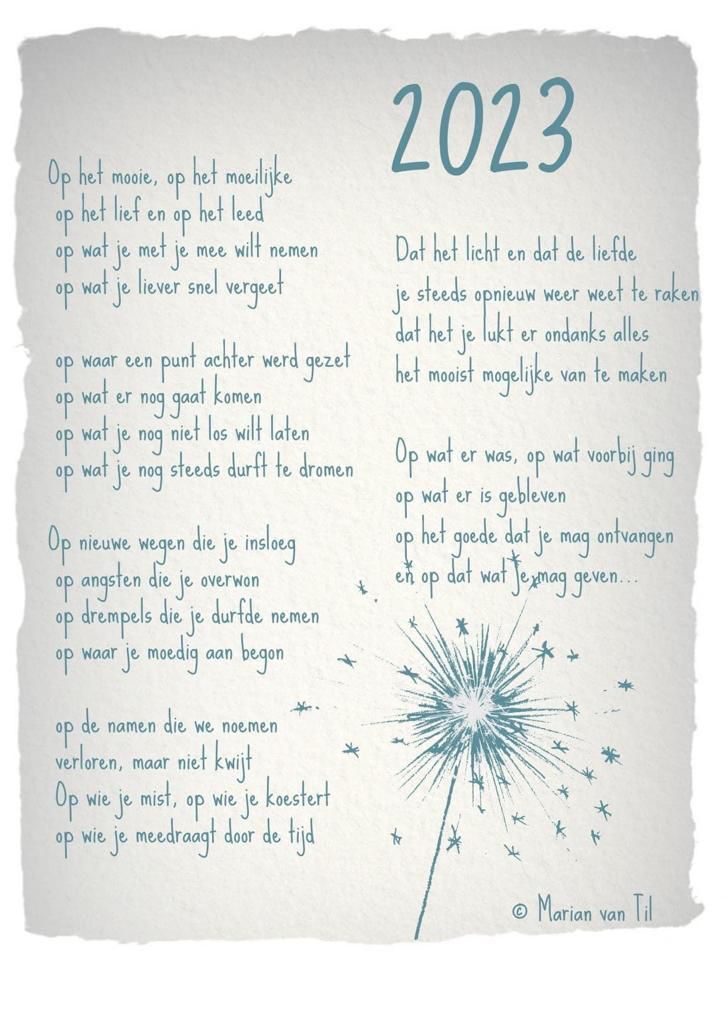 2023
Op het mooie, op het moeilijke
op het lief en op het leed
op wat je met je mee wilt nemen
op wat je liever snel vergeet
op waar een punt achter werd gezet
op wat er nog gaat komen
op wat je nog niet los wilt laten
op wat je nog steeds durft te dromen
Op nieuwe wegen die je insloeg
op angsten die je overwon
op drempels die je durfde nemen
op waar je moedig aan begon
op de namen die we noemen
verloren, maar niet kwijt
Op wie je mist, op wie je koestert
op wie je meedraagt door de tijd
Dat het licht en dat de liefde
je steeds opnieuw weer weet te raken
dat het je lukt er ondanks alles
het mooist mogelijke van te maken
Op wat er was, op wat voorbij ging
op wat er is gebleven
op het goede dat je mag ontvangen
en op dat wat je mag geven...
© Marian van Til